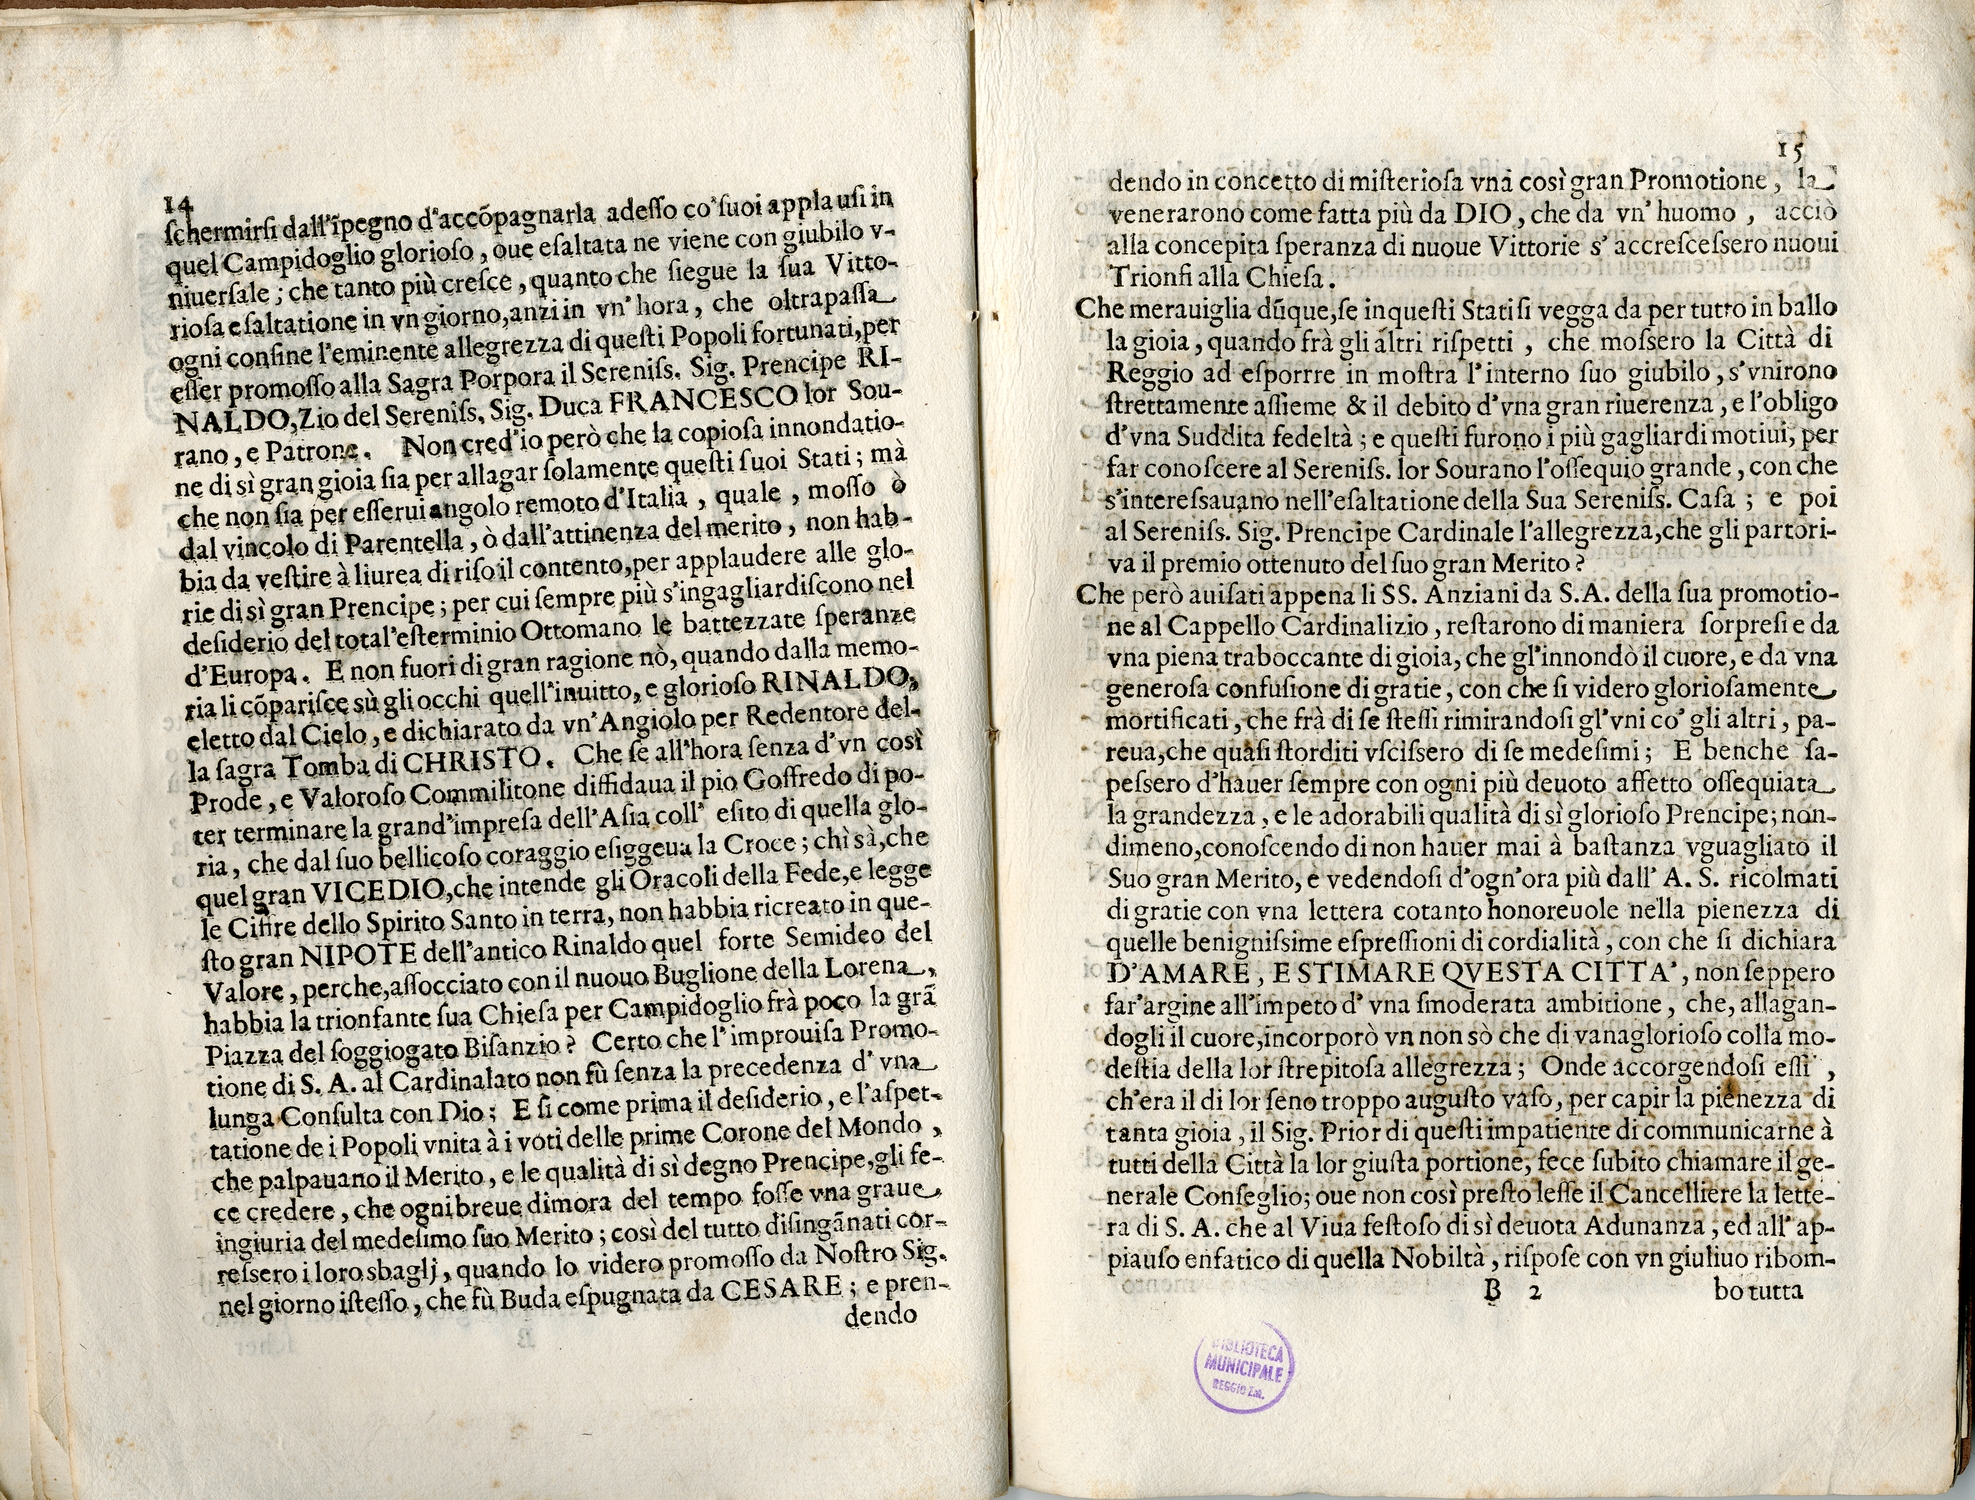 14
ſchermirſi dall'ĩpegno d'accõpagnarla adeſſo co'ſuoi applauſi in
quel Campidoglio glorioſo, oue eſaltata ne viene con giubilo v-
niuerſale; che tanto più creſce, quanto che ſiegue la ſua Vitto-
rioſa eſaltatione in vn giorno, anzi in vn'hora, che oltrapaſſa
ogni confine l'eminente allegrezza di queſti Popoli fortunati, per
eſſer promoſſo alla Sagra Porpora il Sereniſs. Sig. Prencipe RI-
NALDO, Zio del Sereniſs. Sig. Duca FRANCESCO lor Sou-
rano, e Patrone. Non cred'io però che la copioſa innondatio-
ne di sì gran gioia ſia per allagar ſolamente queſti ſuoi Stati; mà
che non ſia per eſſerui angolo remoto d'Italia, quale, moſſo ò
dal vincolo di Parentella, ò dall'attinenza del merito, non hab-
bia da veſtire à liurea di riſo il contento, per applaudere alle glo-
rie di sì gran Prencipe; per cui ſempre più s'ingagliardiſcono nel
deſiderio del total'eſterminio Ottomano le battezzate ſperanze
d'Europa. E non fuori di gran ragione nò, quando dalla memo-
ria li cõpariſce sù gli occhi quell'inuitto, e glorioſo RINALDO,
eletto dal Cielo, e dichiarato da vn'Angiolo per Redentore del-
la ſagra Tomba di CHRISTO. Che ſe all'hora ſenza d'vn così
Prode, e Valoroſo Commilitone diffidaua il pio Goffredo di po-
ter terminare la grand'impreſa dell'Aſia coll' eſito di quella glo-
ria, che dal ſuo bellicoſo coraggio eſiggeua la Croce; chì sà, che
quel gran VICEDIO, che intende gli Oracoli della Fede, e legge
le Cifire dello Spirito Santo in terra, non habbia ricreato in que-
ſto gran NIPOTE dell'antico Rinaldo quel forte Semideo del
Valore, perche, aſſocciato con il nuouo Buglione della Lorena,
habbia la trionfante ſua Chieſa per Campidoglio frà poco la grã
Piazza del ſoggiogato Biſanzio? Certo che l'improuiſa Promo-
tione di S. A. al Cardinalato non fù ſenza la precedenza d' vna
lunga Conſulta con Dio; E ſi come prima il deſiderio, e l'aſpet-
tatione de i Popoli vnita à i voti delle prime Corone del Mondo,
che palpauano il Merito, e le qualità di sì degno Prencipe, gli fe-
ce credere, che ogni breue dimora del tempo foſſe vna graue
ingiuria del medeſimo ſuo Merito; così del tutto diſingãnati cor-
reſsero i loro sbaglj, quando lo videro promoſſo da Noſtro Sig.
nel giorno iſteſſo, che fù Buda eſpugnata da CESARE; e pren-
dendo
15
dendo in concetto di miſterioſa vna così gran Promotione, la
venerarono come fatta più da DIO, che da vn' huomo, acciò
alla concepita ſperanza di nuoue Vittorie s' accreſceſsero nuoui
Trionfi alla Chieſa.
Che merauiglia dũque, ſe in queſti Stati ſi vegga da per tutto in ballo
la gioia, quando frà gli altri riſpetti, che moſsero la Città di
Reggio ad eſporrre in moſtra l'interno ſuo giubilo, s'vnirono
ſtrettamente aſſieme & il debito d'vna gran riuerenza, e l'obligo
d'vna Suddita fedeltà; e queſti furono i più gagliardi motiui, per
far conoſcere al Sereniſs. lor Sourano l'oſſequio grande, con che
s'intereſsauano nell'eſaltatione della Sua Sereniſs. Caſa; e poi
al Sereniſs. Sig. Prencipe Cardinale l'allegrezza, che gli partori-
va il premio ottenuto del ſuo gran Merito?
Che però auiſati appena li SS. Anziani da S.A. della ſua promotio-
ne al Cappello Cardinalizio, reſtarono di maniera ſorpreſi e da
vna piena traboccante di gioia, che gl'innondò il cuore, e da vna
generoſa confuſione di gratie, con che ſi videro glorioſamente
mortificati, che frà di ſe ſteſſi rimirandoſi gl'vni co' gli altri, pa-
reua, che quaſi ſtorditi vſciſsero di ſe medeſimi; E benche ſa-
peſsero d'hauer ſempre con ogni più deuoto affetto oſſequiata
la grandezza, e le adorabili qualità di sì glorioſo Prencipe; non-
dimeno, conoſcendo di non hauer mai à baſtanza vguagliato il
Suo gran Merito, e vedendoſi d'ogn'ora più dall' A. S. ricolmati
di gratie con vna lettera cotanto honoreuole nella pienezza di
quelle benigniſsime eſpreſſioni di cordialità, con che ſi dichiara
D'AMARE, E STIMARE QVESTA CITTA', non ſeppero
far'argine all'impeto d' vna ſmoderata ambitione, che, allagan-
dogli il cuore, incorporò vn non sò che di vanaglorioſo colla mo-
deſtia della lor ſtrepitoſa allegrezza; Onde accorgendoſi eſſi,
ch'era il di lor ſeno troppo auguſto vaſo, per capir la pienezza di
tanta gioia, il Sig. Prior di queſti impatiente di communicarne à
tutti della Città la lor giuſta portione, fece ſubito chiamare il ge-
nerale Conſeglio; oue non così preſto leſſe il Cancelliere la lette-
ra di S. A. che al Viua feſtoſo di sì deuota Adunanza, ed all' ap-
piauſo enfatico di quella Nobiltà, riſpoſe con vn giuliuo ribom-
B 2 bo tutta
BIBLIOTECA
MUNICIPALE
REGGIO EM.